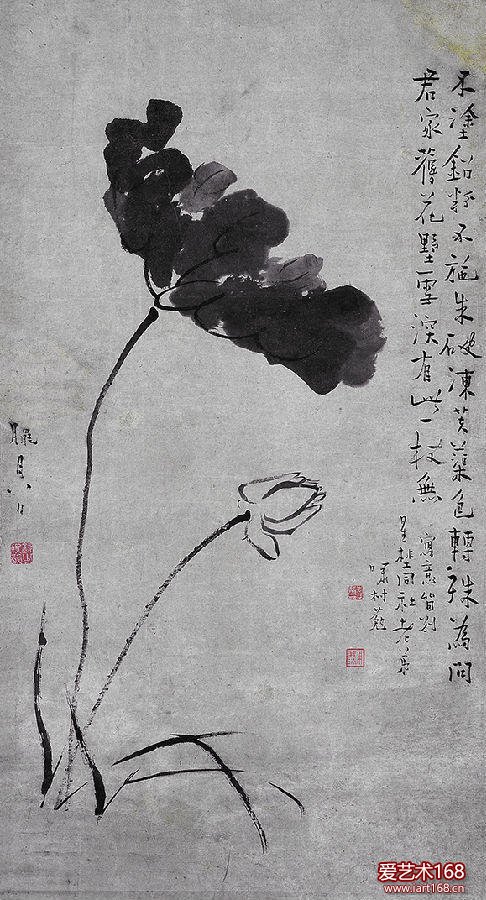 不塗鉛粉不施朱破凍芙蕖色轉殊為問
君家舊花墅雪深有此一枝無
寫意留別
同社老哥
嘯村葂
臘月八日
爱艺术168
www.iart168.cn